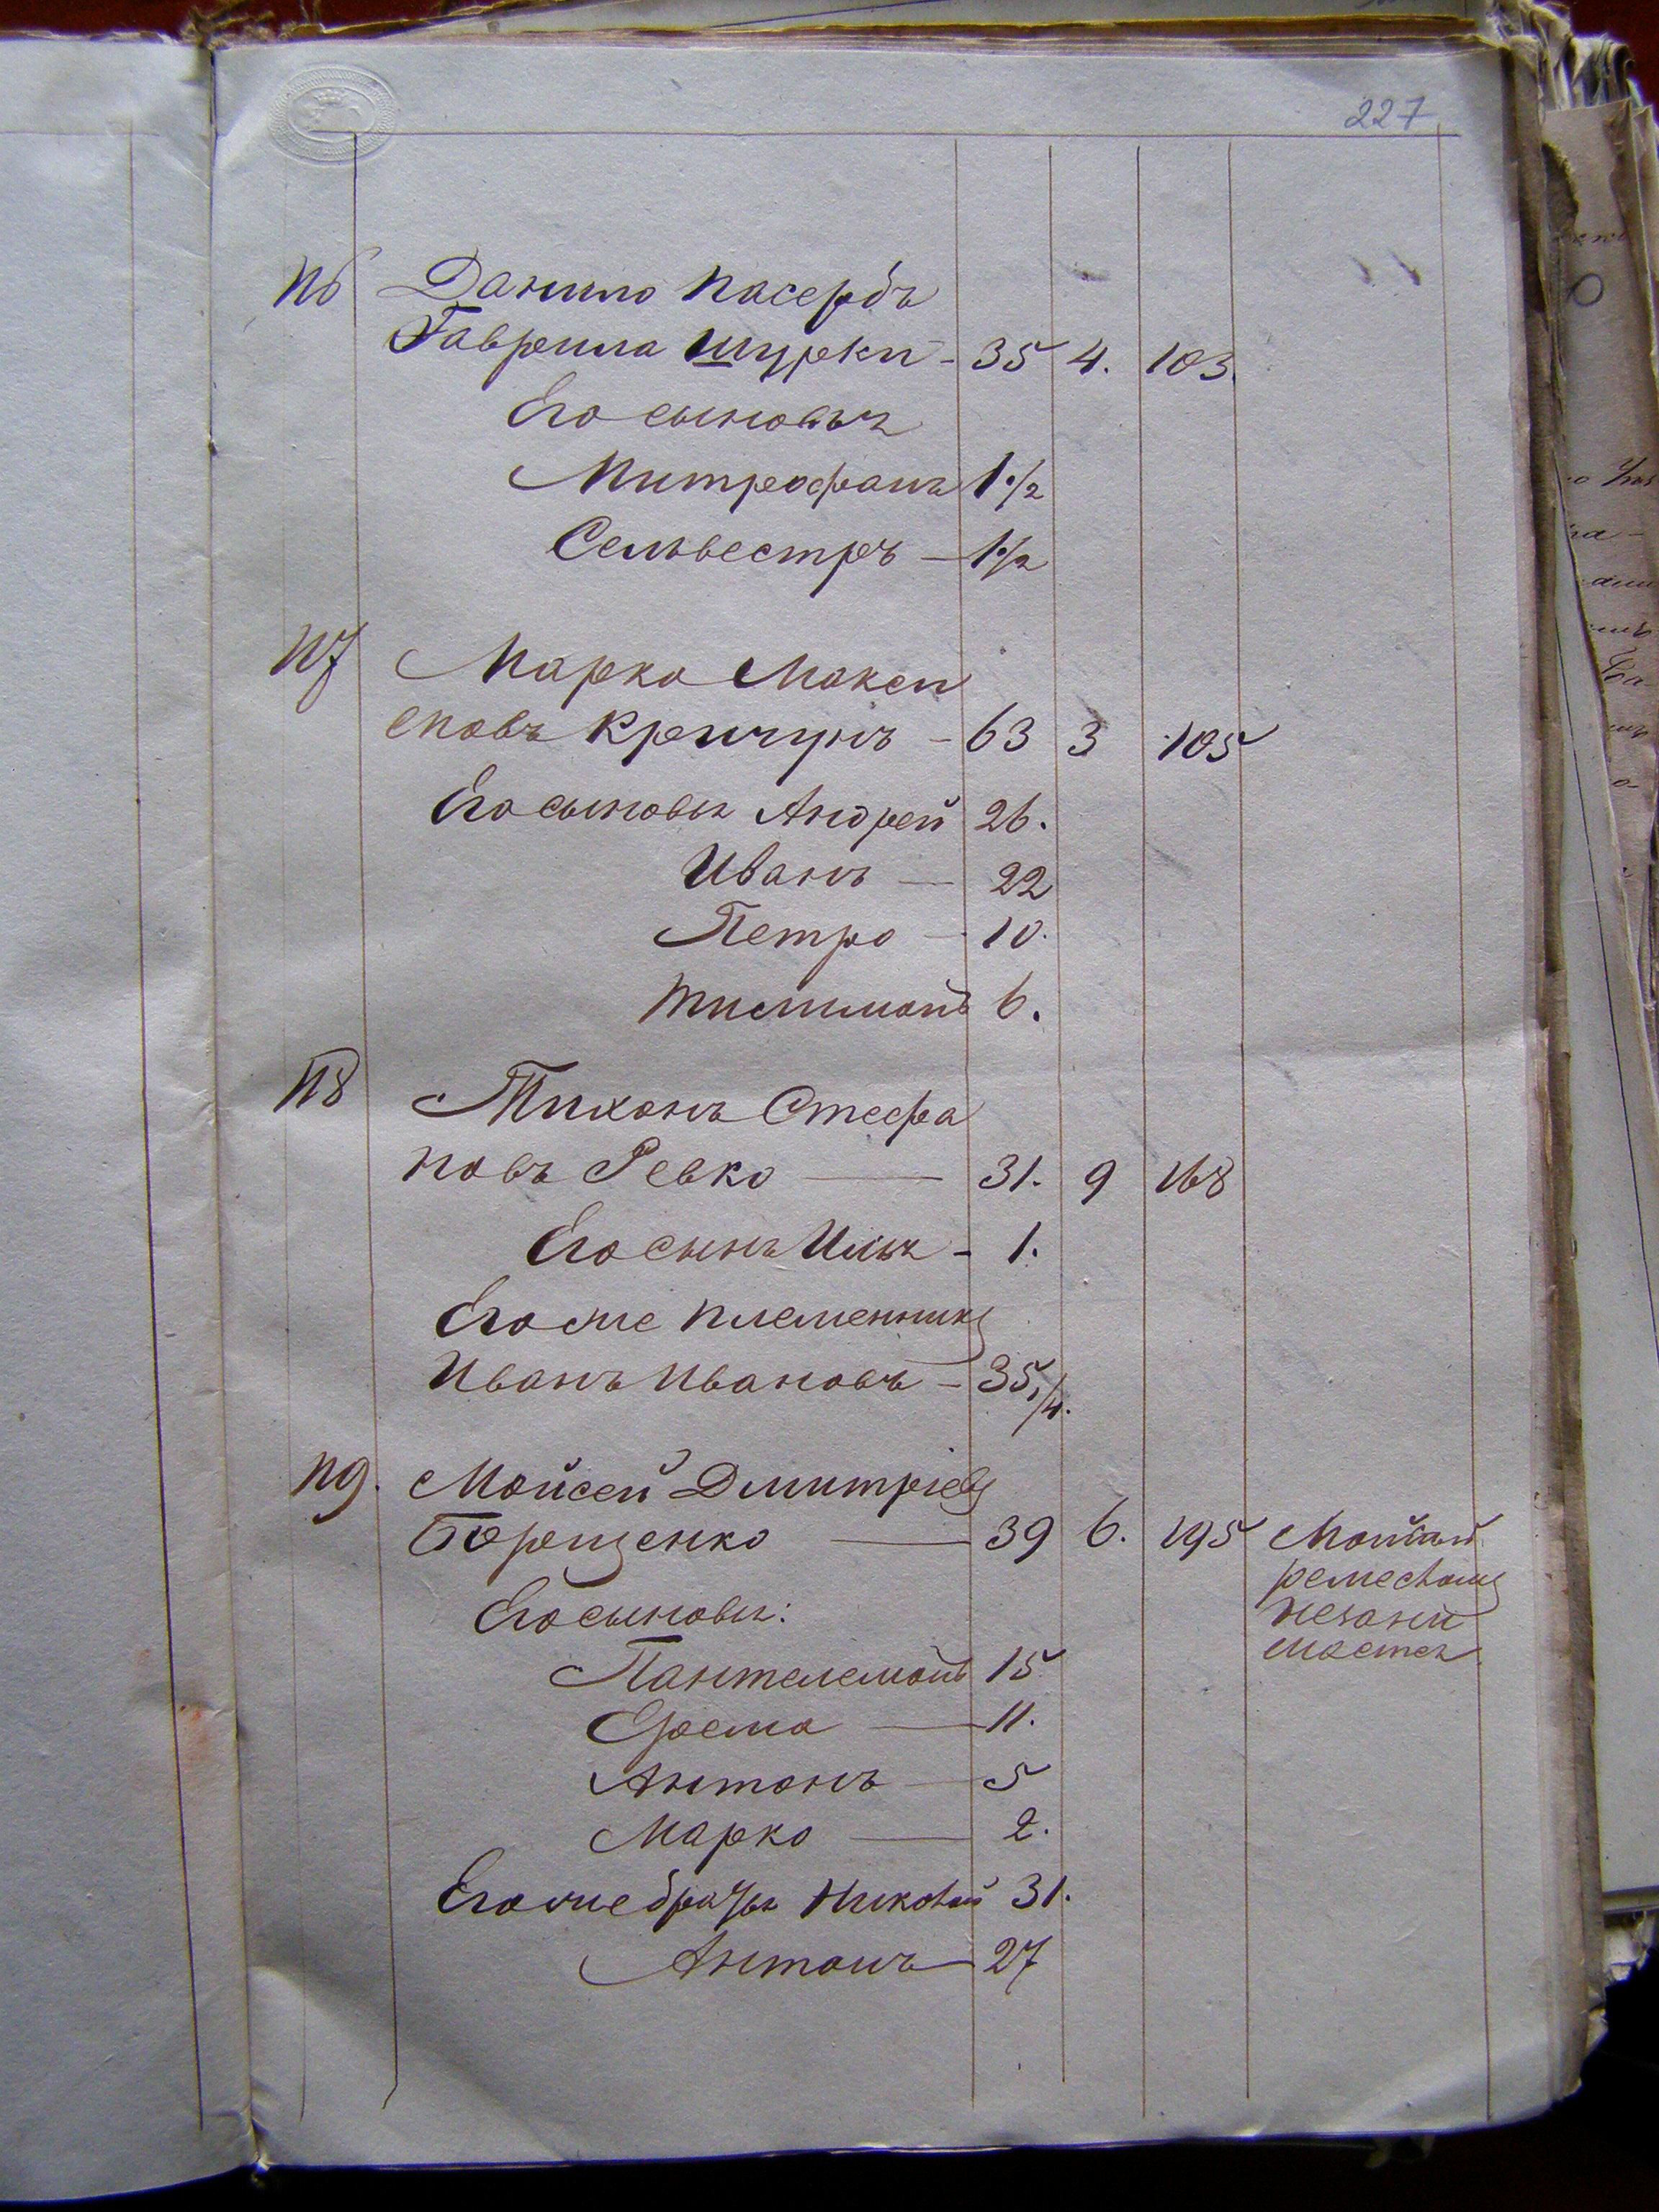 227
Данило пасербъ
Гаврила Шурки - 35 4. 103.
Его сыновья
Митрофанъ 1 1/2
Сельвестръ - 1 1/2
N7 Марко Макси
мовъ Кричунъ - 63 3 105
Его сыновья Андрей 26.
Иванъ — 22
Петро - 10.
6.
N8 Тихонъ Стефа
новъ Ревко — 31. 9 168
Его сынъ Илья - 1.
Его же племенникъ
Иванъ Ивановъ - 35 1/4.
N9. Мойсей Дмитріевъ
Борщенко — 39 6. 195 Мойсей
Его сыновья:
Пантелемонъ 15
Ерема — 11.
Антонъ - 5
Марко — 2.
Его же братья Николай 31.
Антонъ - 27